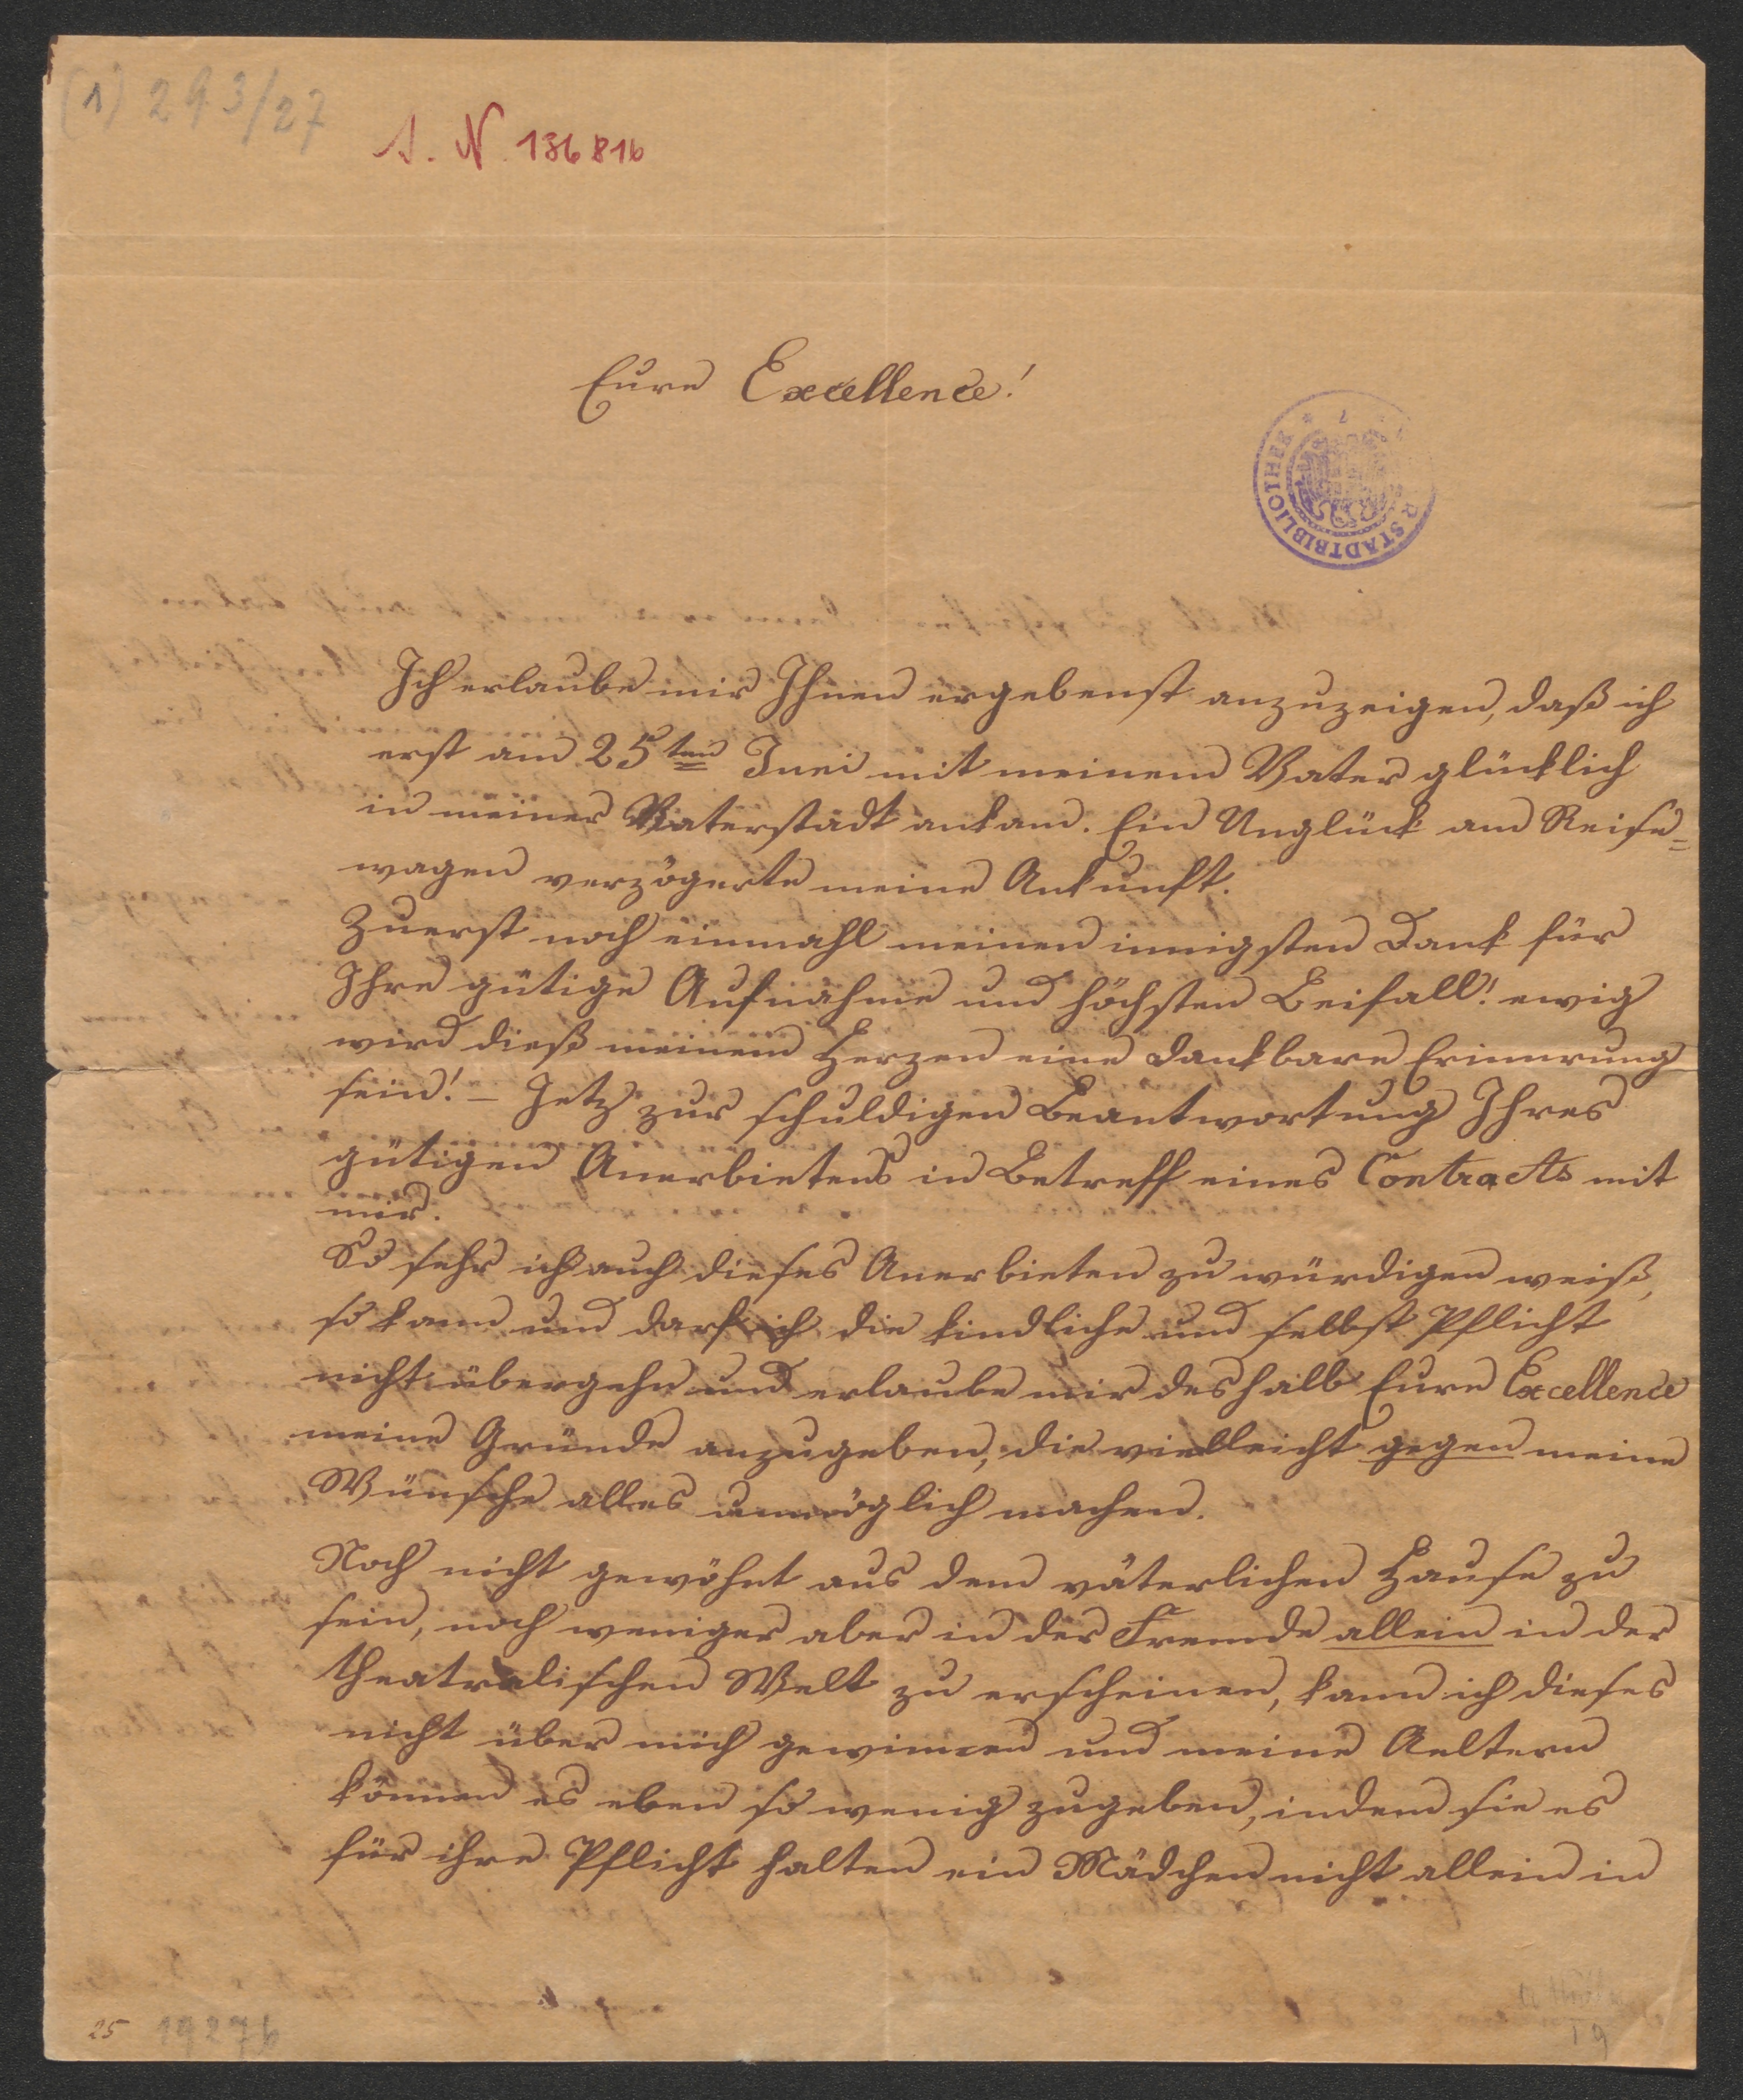 (1) 293/27
I. N. 136816
Eure Excellence!
STADTBIBLIOTHEK
Ich erlaube mir Ihnen ergebenst anzuzeigen, daß ich
erst am 25ten Juni mit meinem Vater glücklich
in meiner Vaterstadt ankam. Ein Unglück am Reise=
wagen verzögerte meine Ankunft.
Zuerst noch einmahl meinen innigsten Dank für
Ihre gütige Aufnahme und höchsten Beifall! ewig
wird dieß meinem Herzen eine dankbare Erinnrung
sein! – Jetz zur schuldigen Beantwortung Ihres
gütigen Anerbietens in Betreff eines Contracts mit
mir.
So sehr ich auch dieses Anerbieten zu würdigen weiß,
so kann und darf ich die kindliche und selbst Pflicht
nicht übergehn und erlaube mir deshalb Eure Excellence
meine Gründe anzugeben, die vielleicht gegen meine
Wünsche alles unmöglich machen.
Noch nicht gewöhnt aus dem väterlichen Hause zu
sein, noch weniger aber in der Fremde allein in der
theatralischen Welt zu erscheinen, kann ich dieses
nicht über mich gewinnen und meine Aeltern
können es eben so wenig zugeben, indem sie es
für ihre Pflicht halten ein Mädchen nicht allein in
25 19276